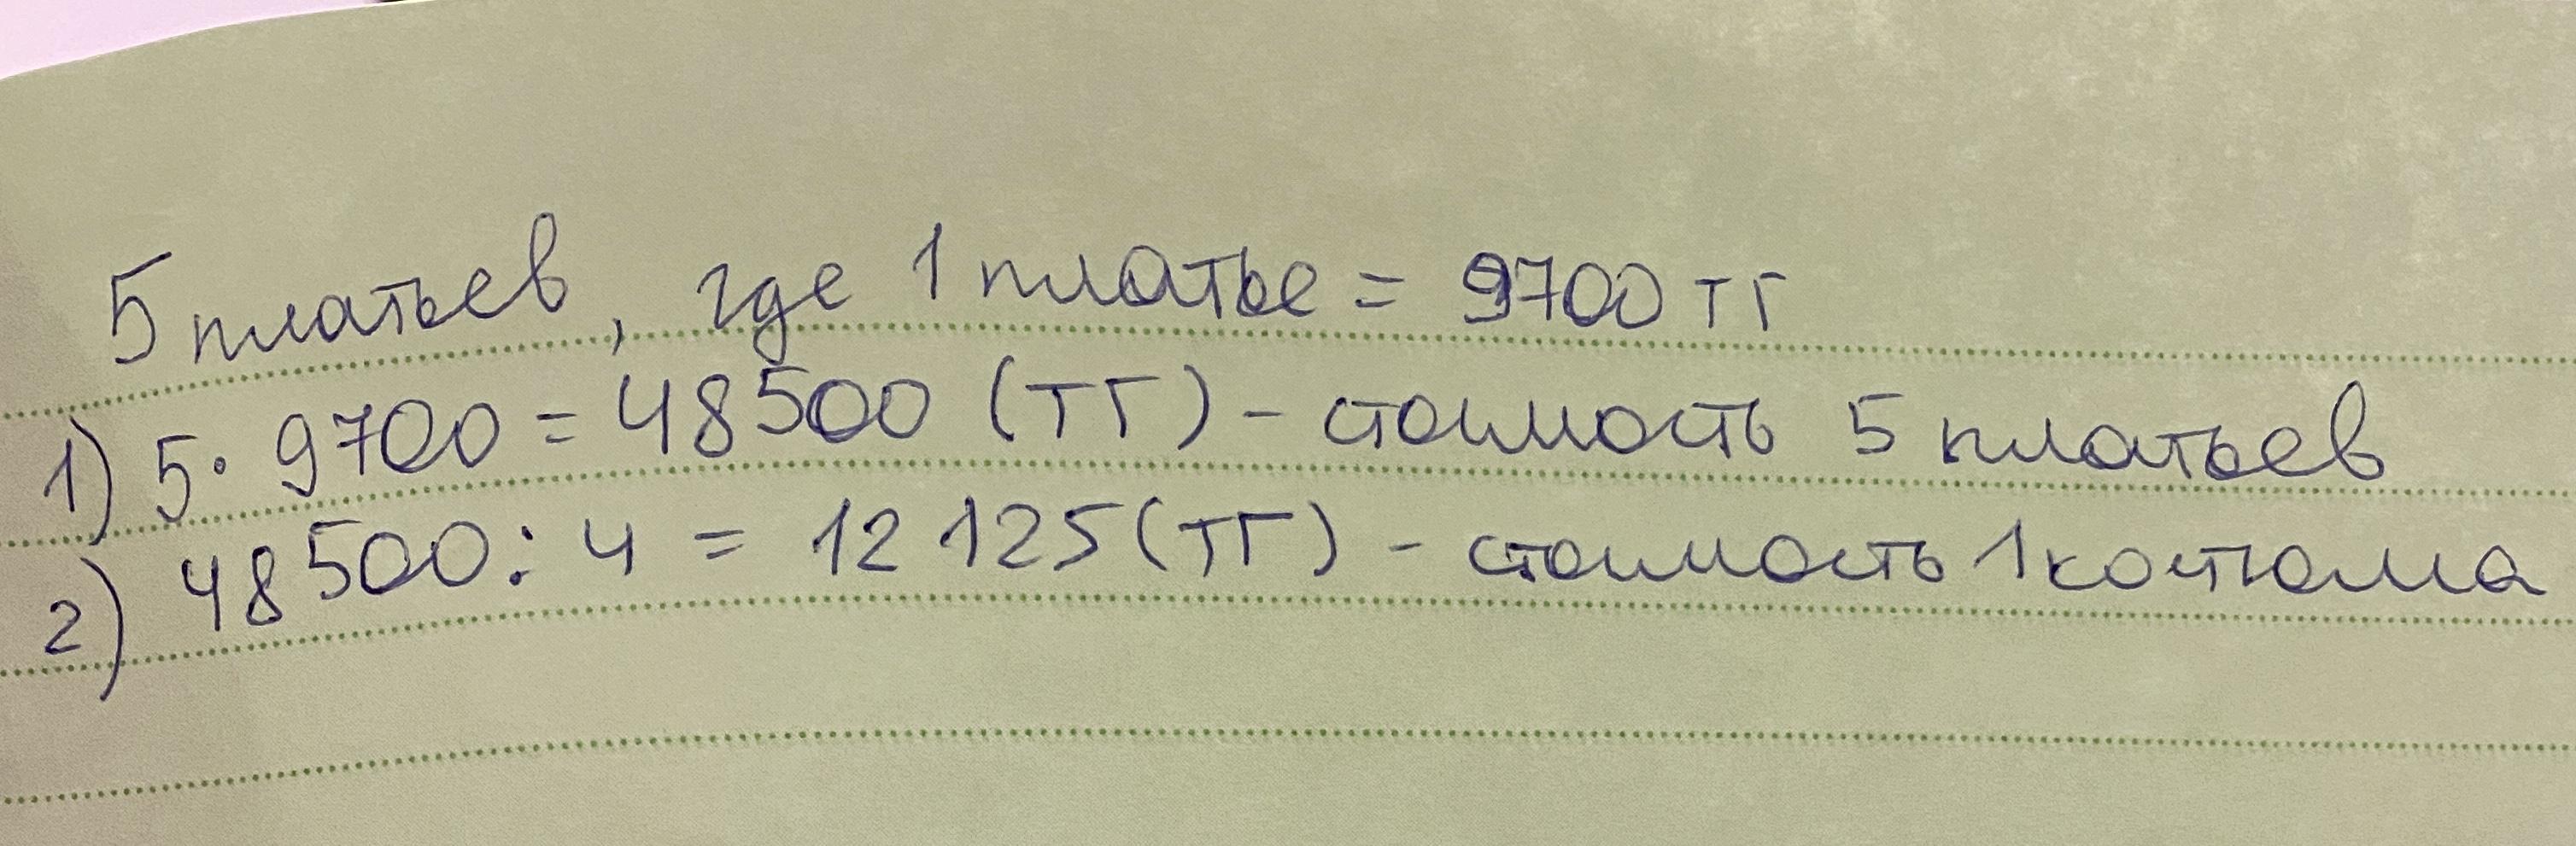 5 платьев, где 1 платье = 9700 тг
1) 5 · 9700 = 48500 (тг) - стоимость 5 платьев
2) 48500 : 4 = 12 125 (тг) - стоимость 1 костюма